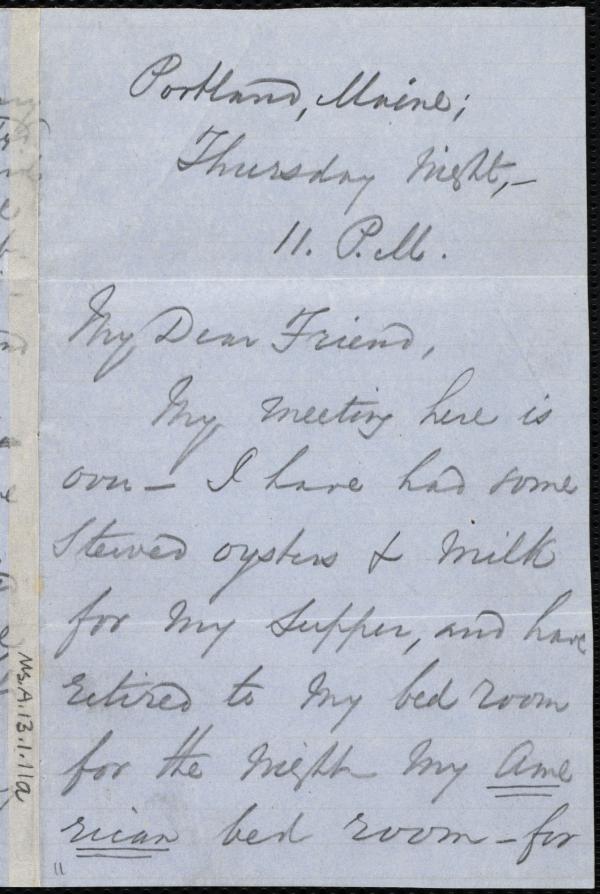 Portland, Maine;
Thursday Night,—
11. P.M.
My Dear Friend,
My meeting here is
over — I have had some
Stewed oysters & milk
for my supper, and have
retired to my bed room
for the night my Ame
rican bed room — for
Ms.A.13.1.11a
11